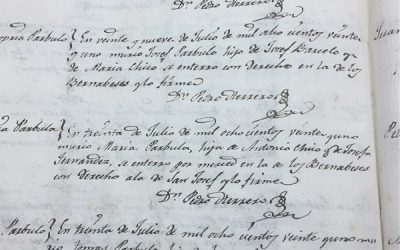 Dn. Pedro Herrero
Parbulo } En veinte y nueve de Julio de mil ocho cientos veinte
y uno murio Josef Parbulo hijo de Josef Barcelo y
de Maria Chico se enterro con derecho en la de los
Bernabeses y lo firme
Dn. Pedro Herrero
Parbula } En treinta de Julio de mil ocho cientos veinte y uno
murio Maria Parbula, hija de Antonio Chico y de Josefa
Fernandez, se enterro por merced en la de los Bernabeses
con derecho a la de San Josef y lo firme
Dn. Pedro Herrero
Parbulo } En treinta de Julio de mil ocho cientos veinte y uno mu
rio Tomas Parbulo hijo de